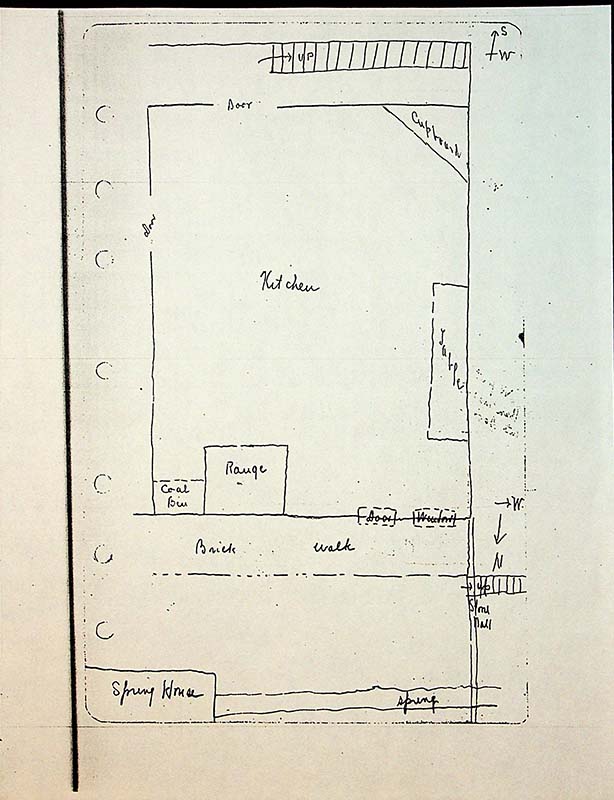 S
W
UP
Door
Cupboard
Door
Kitchen
Table
Range
Coal
Bin
Door Window
W.
N
Brick walk
up
Stone
Wall
Spring House
spring